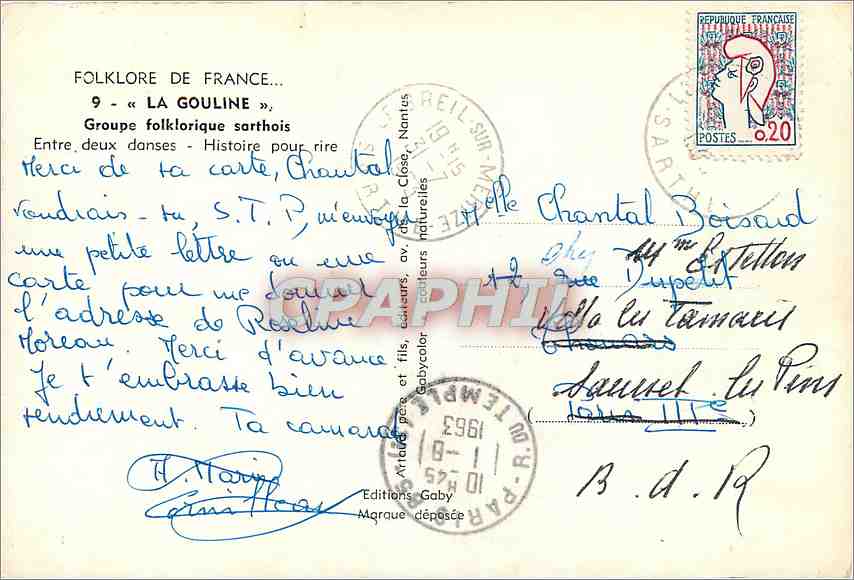 FOLKLORE DE FRANCE...
9 - « LA GOULINE »,
Groupe folklorique sarthois
Entre deux danses - Histoire pour rire
Merci de ta carte, Chantal
Voudrais-tu, S.T.P, m'envoyer
une petite lettre ou une
carte pour me donner
l'adresse de Roseline
Moreau. Merci d'avance.
Je t'embrasse bien
tendrement. Ta camarade
M. Marin
Artaud père et fils, éditeurs, av. de la Close, Nantes
Gabycolor couleurs naturelles
Editions Gaby
Marque déposée
REPUBLIQUE FRANÇAISE
POSTES 0,20
LE BREIL-SUR-MERIZE
19 H 15
SARTHE
SARTHE
Melle Chantal Boisard
chez Mme
12, rue Dupetit
Villa les Tamaris
Thouars
Sausset les Pins
Paris IIIe
B. d. R
PARIS
R. DU TEMPLE
10 H 45
1-8
1963
CPAPHIL